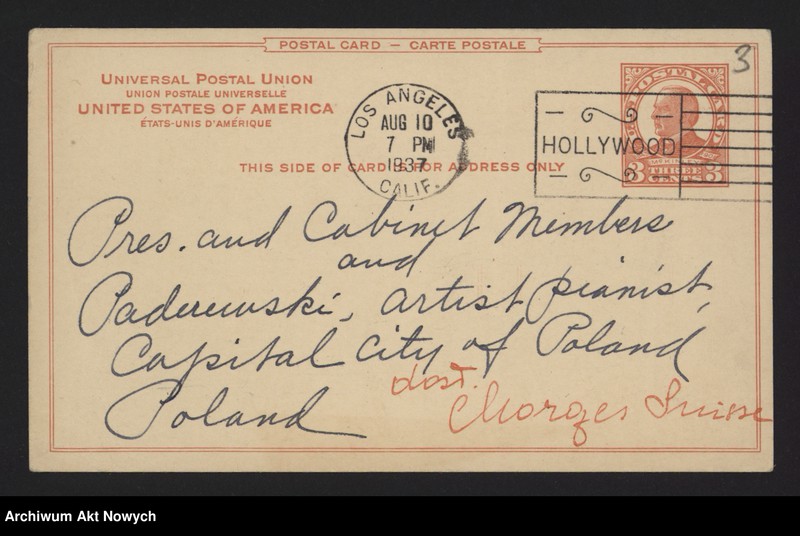 POSTAL CARD — CARTE POSTALE
3
UNIVERSAL POSTAL UNION
UNION POSTALE UNIVERSELLE
UNITED STATES OF AMERICA
ÉTATS-UNIS D'AMÉRIQUE
THIS SIDE OF CARD IS FOR ADDRESS ONLY
LOS ANGELES
AUG 10
7 PM
1937
CALIF.
HOLLYWOOD
POSTAL CARD
3 THREE CENTS 3
Pres. and Cabinet Members
and
Paderewski, artist pianist,
Capital City of Poland
Poland
dost.
Morges Suisse
Archiwum Akt Nowych